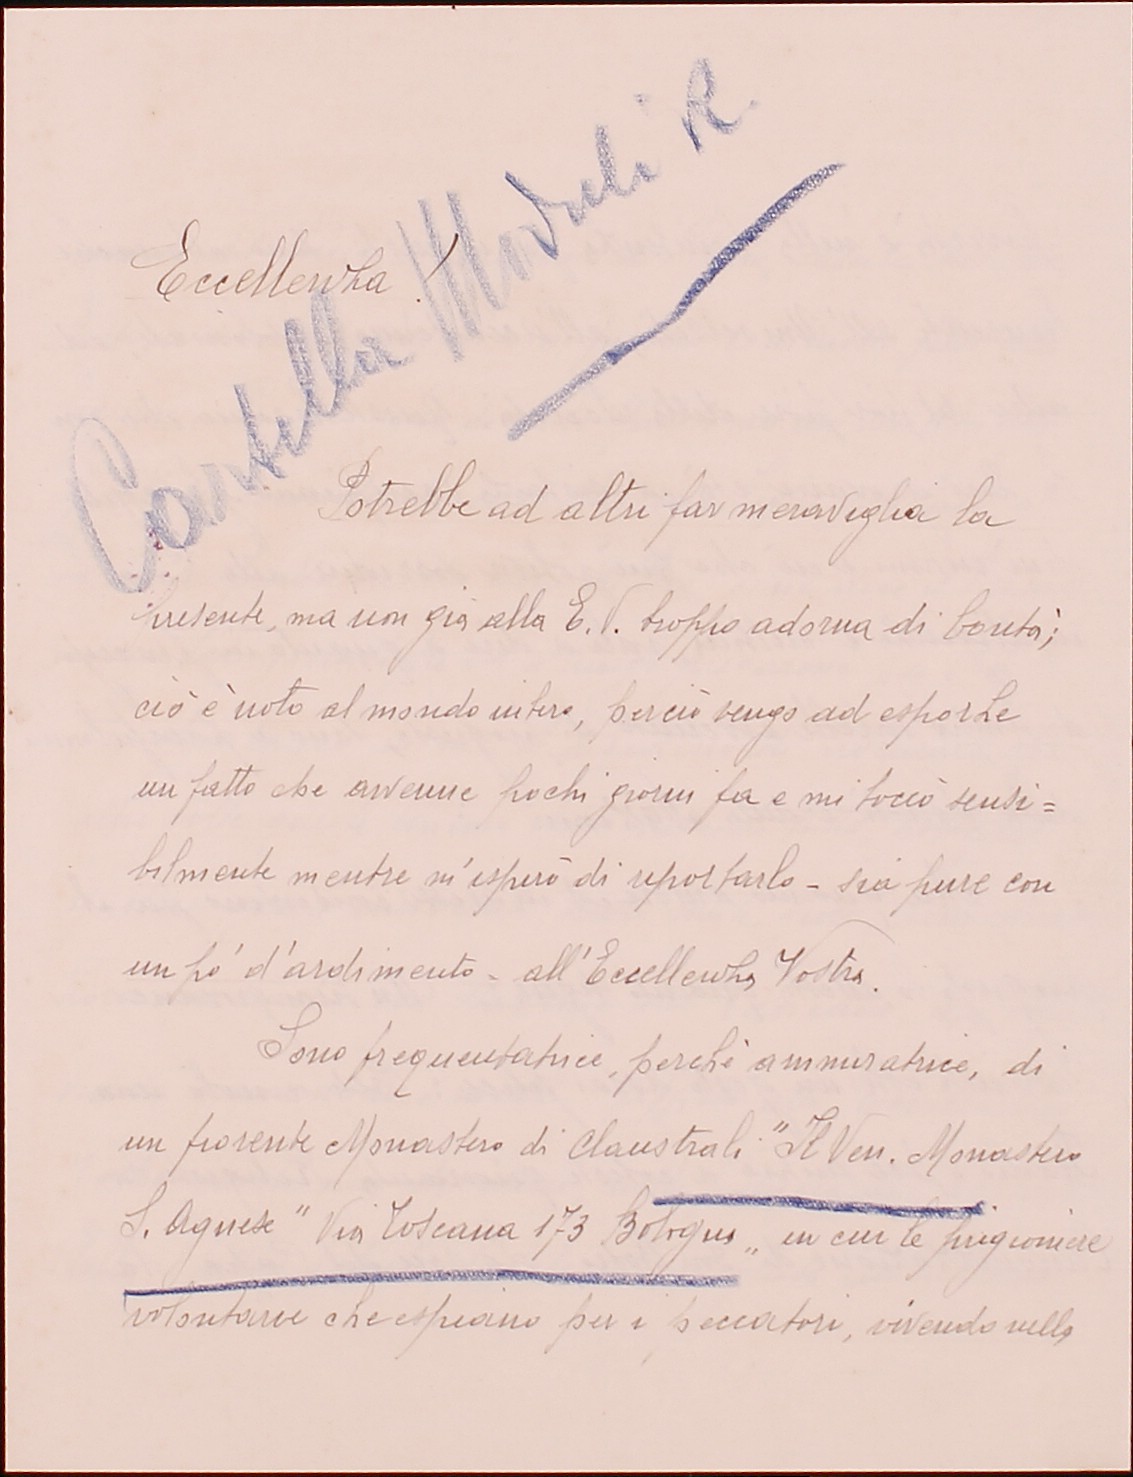 Cartella Moduli R.
Eccellenza!
Potrebbe ad altri far meraviglia la
presente, ma non già alla E. V. troppo adorna di bontà;
ciò è noto al mondo intero, perciò vengo ad esporLe
un fatto che avvenne pochi giorni fa e mi toccò sensi=
bilmente mentre m'ispirò di riportarlo - sia pure con
un pò' d'ardimento - all'Eccellenza Vostra.
Sono frequentatrice, perchè ammiratrice, di
un fiorente Monastero di Claustrali "Il Ven. Monastero
S. Agnese" Via Toscana 173 Bologna „ in cui le prigioniere
volontarie che espiano per i peccatori, vivendo nella